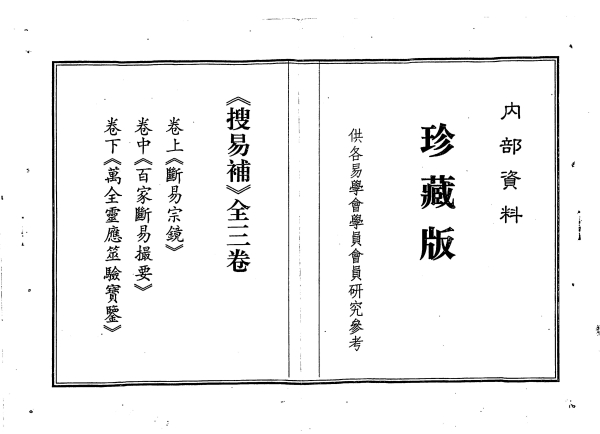 内部資料
珍藏版
供各易學會學員會員研究參考
《搜易補》全三卷
卷上《斷易宗鏡》
卷中《百家斷易撮要》
卷下《萬全靈應筮驗寶鑒》